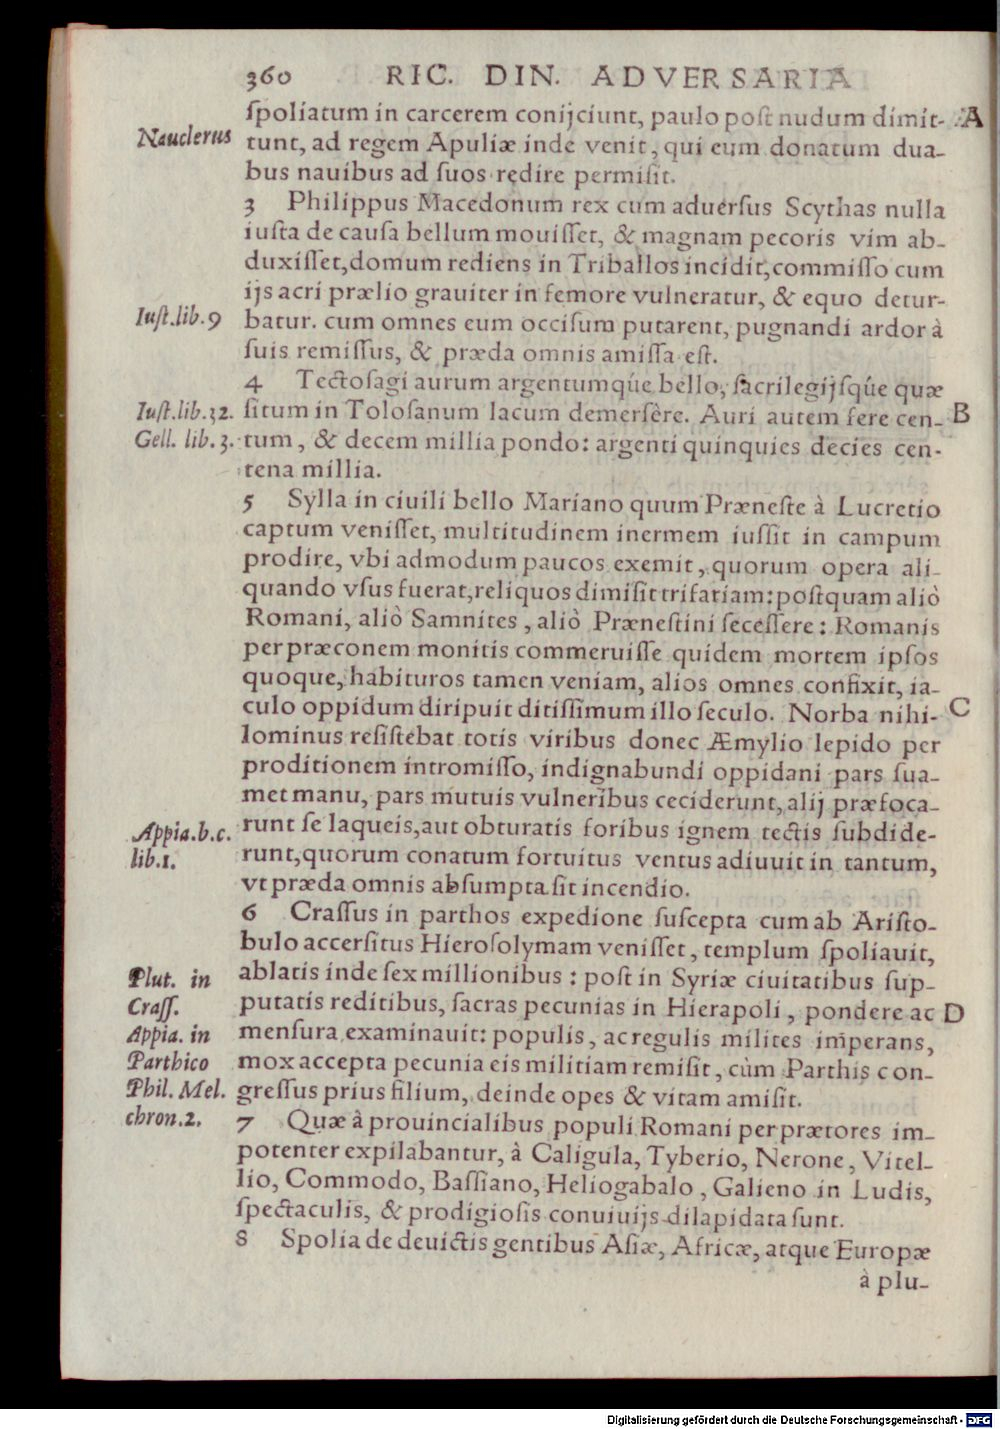 360 RIC. DIN. ADVERSARIA
ſpoliatum in carcerem conijciunt, paulo poſt nudum dimit- A
Nauclerus tunt, ad regem Apuliæ inde venit, qui eum donatum dua-
bus nauibus ad ſuos redire permiſit.
3 Philippus Macedonum rex cum aduerſus Scythas nulla
iuſta de cauſa bellum mouiſſet, & magnam pecoris vim ab-
duxiſſet, domum rediens in Triballos incidit, commiſſo cum
ijs acri prælio grauiter in femore vulneratur, & equo detur-
Iuſt.lib.9 batur. cum omnes eum occiſum putarent, pugnandi ardor à
ſuis remiſſus, & præda omnis amiſſa eſt.
4 Tectoſagi aurum argentumqúe bello, ſacrilegijſqúe quæ
Iuſt.lib.32. ſitum in Toloſanum lacum demerſêre. Auri autem fere cen- B
Gell. lib. 3. tum, & decem millia pondo: argenti quinquies decies cen-
tena millia.
5 Sylla in ciuili bello Mariano quum Præneſte à Lucretio
captum veniſſet, multitudinem inermem iuſſit in campum
prodire, vbi admodum paucos exemit, quorum opera ali-
quando vſus fuerat, reliquos dimiſit trifariam: poſtquam aliò
Romani, aliò Samnites, aliò Præneſtini ſeceſſere: Romanis
per præconem monitis commeruiſſe quidem mortem ipſos
quoque, habituros tamen veniam, alios omnes confixit, ia-
culo oppidum diripuit ditiſſimum illo ſeculo. Norba nihi- C
lominus reſiſtebat totis viribus donec Æmylio lepido per
proditionem intromiſſo, indignabundi oppidani pars ſua-
met manu, pars mutuis vulneribus ceciderunt, alij præfoca-
Appia.b.c. runt ſe laqueis, aut obturatis foribus ignem tectis ſubdide-
lib.1. runt, quorum conatum fortuitus ventus adiuuit in tantum,
vt præda omnis abſumpta ſit incendio.
6 Craſſus in parthos expedione ſuſcepta cum ab Ariſto-
bulo accerſitus Hieroſolymam veniſſet, templum ſpoliauit,
Plut. in ablatis inde ſex millionibus: poſt in Syriæ ciuitatibus ſup-
Craſſ. putatis reditibus, ſacras pecunias in Hierapoli, pondere ac D
Appia. in menſura examinauit: populis, ac regulis milites imperans,
Parthico mox accepta pecunia eis militiam remiſit, cùm Parthis con-
Phil. Mel. greſſus prius filium, deinde opes & vitam amiſit.
chron.2. 7 Quæ à prouincialibus populi Romani per prætores im-
potenter expilabantur, à Caligula, Tyberio, Nerone, Vitel-
lio, Commodo, Baſſiano, Heliogabalo, Galieno in Ludis,
ſpectaculis, & prodigioſis conuiuijs dilapidata ſunt.
8 Spolia de deuictis gentibus Aſiæ, Africæ, atque Europæ
à plu-
Digitalisierung gefördert durch die Deutsche Forschungsgemeinschaft - DFG